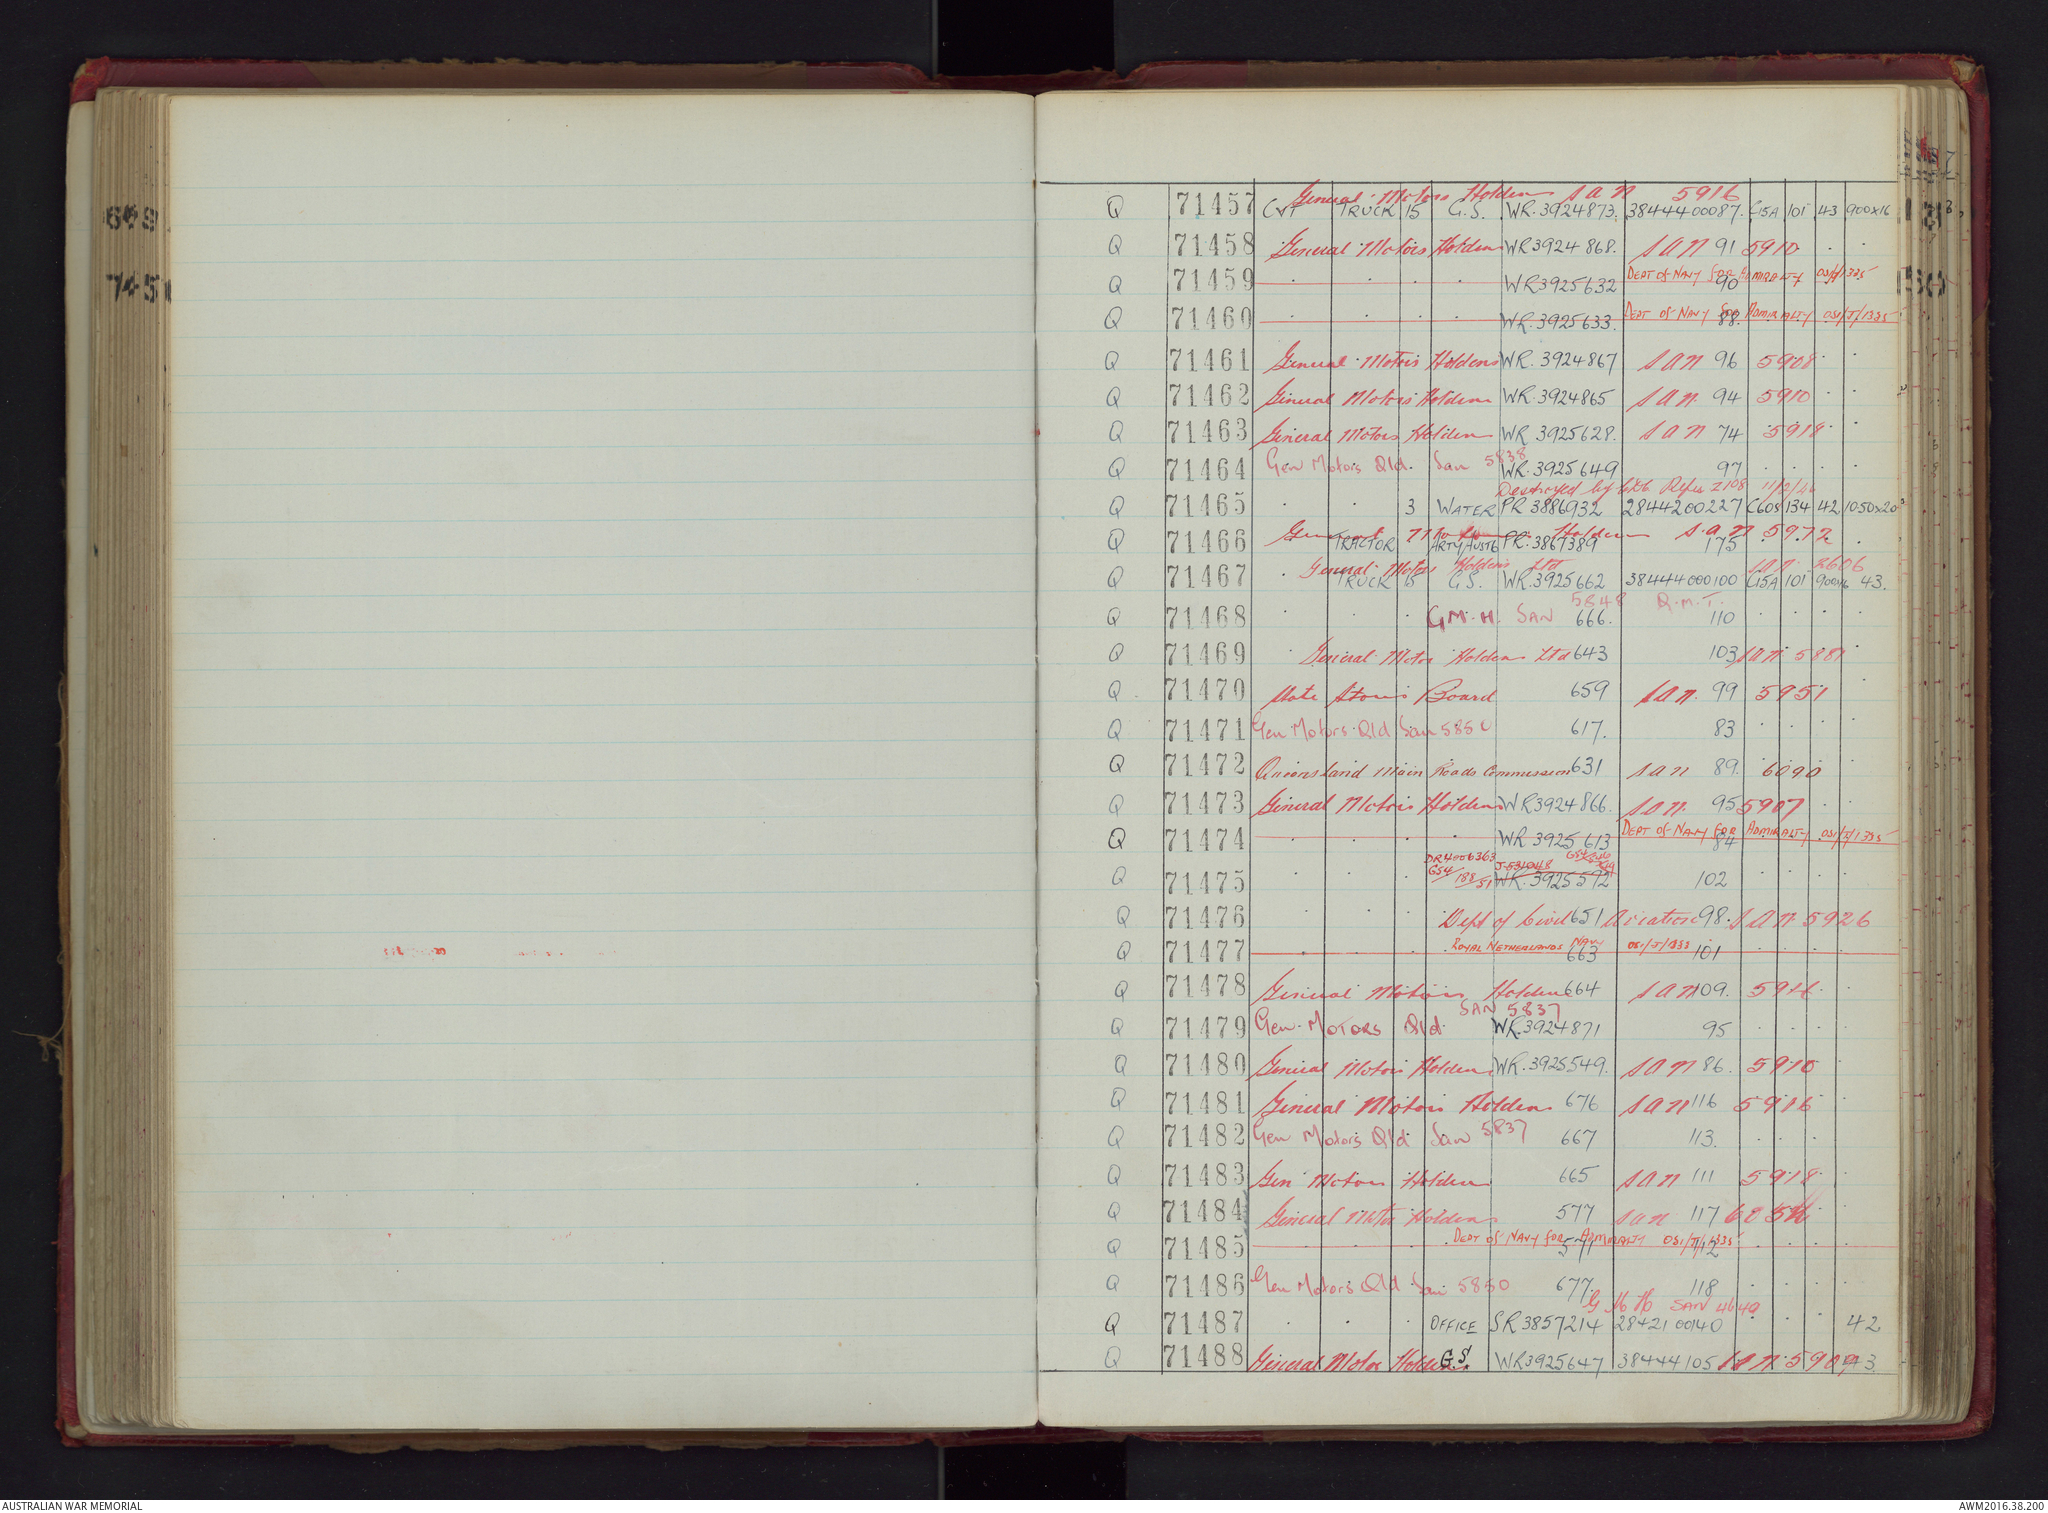 General Motors Holdens SAN 5916
Q 71457 CVT TRUCK 15 G.S. WR.3924873. 38444400087. C15A 101 43 900x16
Q 71458 General Motors Holdens WR3924868. SAN 91 5910
Q 71459 WR3925632 DEPT OF NAVY FOR ADMIRALTY OS1/J/1335 90
Q 71460 WR.3925633. DEPT OF NAVY FOR ADMIRALTY OS1/J/1335 88.
Q 71461 General Motors Holdens WR.3924867 SAN 96 5908
Q 71462 General Motors Holdens WR.3924865 SAN. 94 5910
Q 71463 General Motors Holdens WR 3925628. SAN 74 5918
Q 71464 Gen Motors Qld. San 5838 WR.3925649 97
Destroyed by Refer 11/2/46
Q 71465 3 WATER PR 3886932 2844200227 C60S 134 42 1050x20
General Motors Holdens SAN 5972
Q 71466 TRACTOR ARTY AUST6 PR.3867389 175
General Motors Holdens Ltd SAN 2606
Q 71467 TRUCK 15 G.S. WR.3925662 38444000100 C15A 101 900x16 43.
5848 R.M.T.
Q 71468 G.M.H. SAN 666. 110
Q 71469 General Motor Holdens Ltd 643 103 SAN 5881
Q 71470 State Stores Board 659 SAN. 99 5951
Q 71471 Gen Motors Qld San 5850 617. 83
Q 71472 Queensland Main Roads Commission 631 SAN 89. 6090
Q 71473 General Motors Holdens WR3924866. SAN. 95 5907
Q 71474 WR 3925613 DEPT OF NAVY FOR ADMIRALTY OS1/J/1335 84
DR4006363
Q 71475 G54/188/51 WR.3925592 102
Q 71476 Dept of Civil 651 Aviation 98. SAN. 5926
Q 71477 ROYAL NETHERLANDS NAVY OS1/J/1333 663 101
Q 71478 General Motors Holdens 664 SAN 109. 5916
SAN 5837
Q 71479 Gen. MOTORS Qld. WR.3924871 95
Q 71480 General Motors Holdens WR.3925549. SAN 86. 5910
Q 71481 General Motors Holdens 676 SAN 116 5916
Q 71482 Gen Motors Qld San 5837 667 113.
Q 71483 Gen Motors Holdens 665 SAN 111 5918
Q 71484 General Motor Holdens 577 SAN 117
Q 71485 DEPT OF NAVY FOR ADMIRALTY OS1/J/1335 571 112
Q 71486 Gen Motors Qld San 5850 677. 118
G M H SAN 4649
Q 71487 OFFICE SR3857214 2842100140 42
Q 71488 General Motor Holdens G.S. WR3925647 38444105 SAN 5909 43.
AUSTRALIAN WAR MEMORIAL
AWM2016.38.200